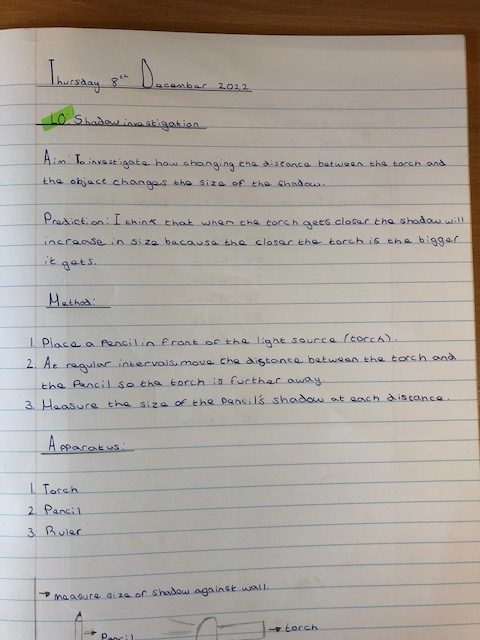 Thursday 8th December 2022
LO: Shadow investigation
Aim: To investigate how changing the distance between the torch and
the object changes the size of the shadow.
Prediction: I think that when the torch gets closer the shadow will
increase in size because the closer the torch is the bigger
it gets.
Method:
1. Place a Pencil in front of the light source (torch).
2. At regular intervals, move the distance between the torch and
the Pencil so the torch is further away.
3. Measure the size of the Pencil's shadow at each distance.
Apparatus:
1. Torch
2. Pencil
3. Ruler
→ measure size of shadow against wall.
→ Pencil → torch